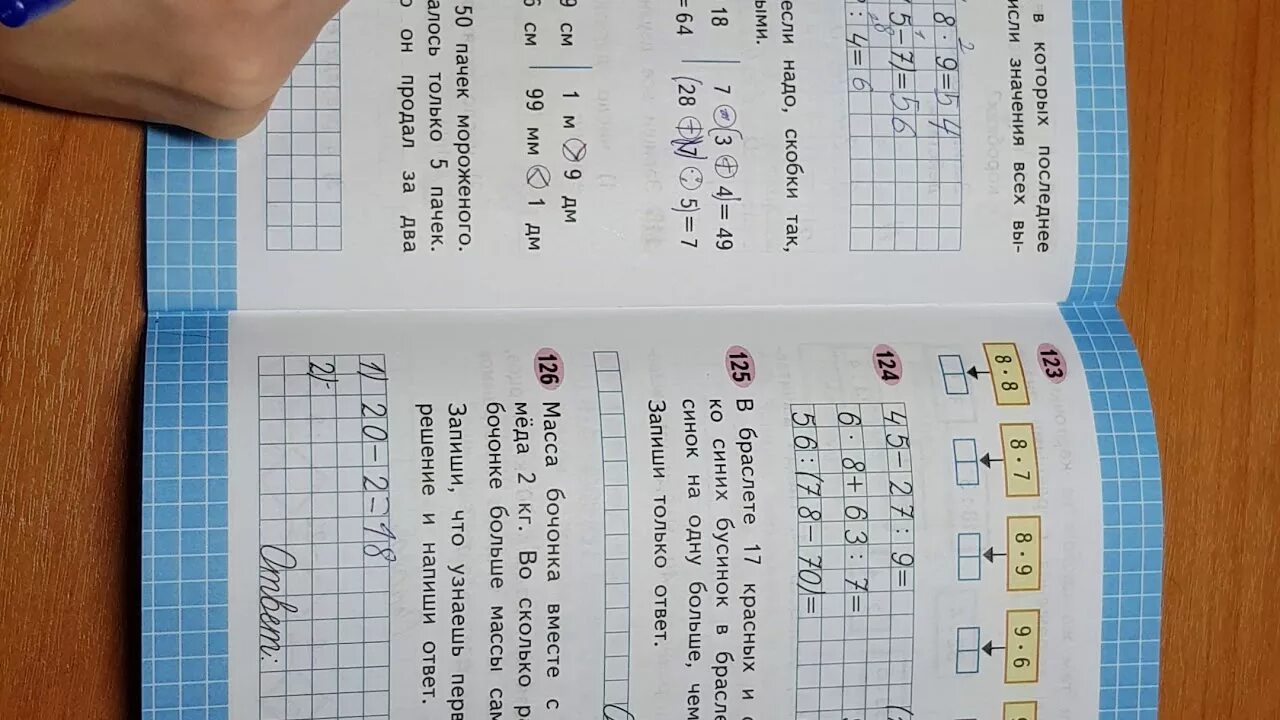 в которых последнее
исли значения всех вы-
8 · 9 = 54
5 - 7) = 56
: 4 = 6
если надо, скобки так,
ыми.
18 | 7 · (3 + 4) = 49
= 64 | (28 + 7) : 5) = 7
9 см | 1 м > 9 дм
6 см | 99 мм < 1 дм
50 пачек мороженого.
алось только 5 пачек.
о он продал за два
123
8 · 8 8 · 7 8 · 9 9 · 6
124
45 - 27 : 9 =
6 · 8 + 63 : 7 =
56 : (78 - 70) =
125 В браслете 17 красных и
ко синих бусинок в брасле
синок на одну больше, чем
Запиши только ответ.
126 Масса бочонка вместе с
мёда 2 кг. Во сколько р
бочонке больше массы сам
Запиши, что узнаешь перв
решение и напиши ответ.
1) 20 - 2 = 18
2)
Ответ: